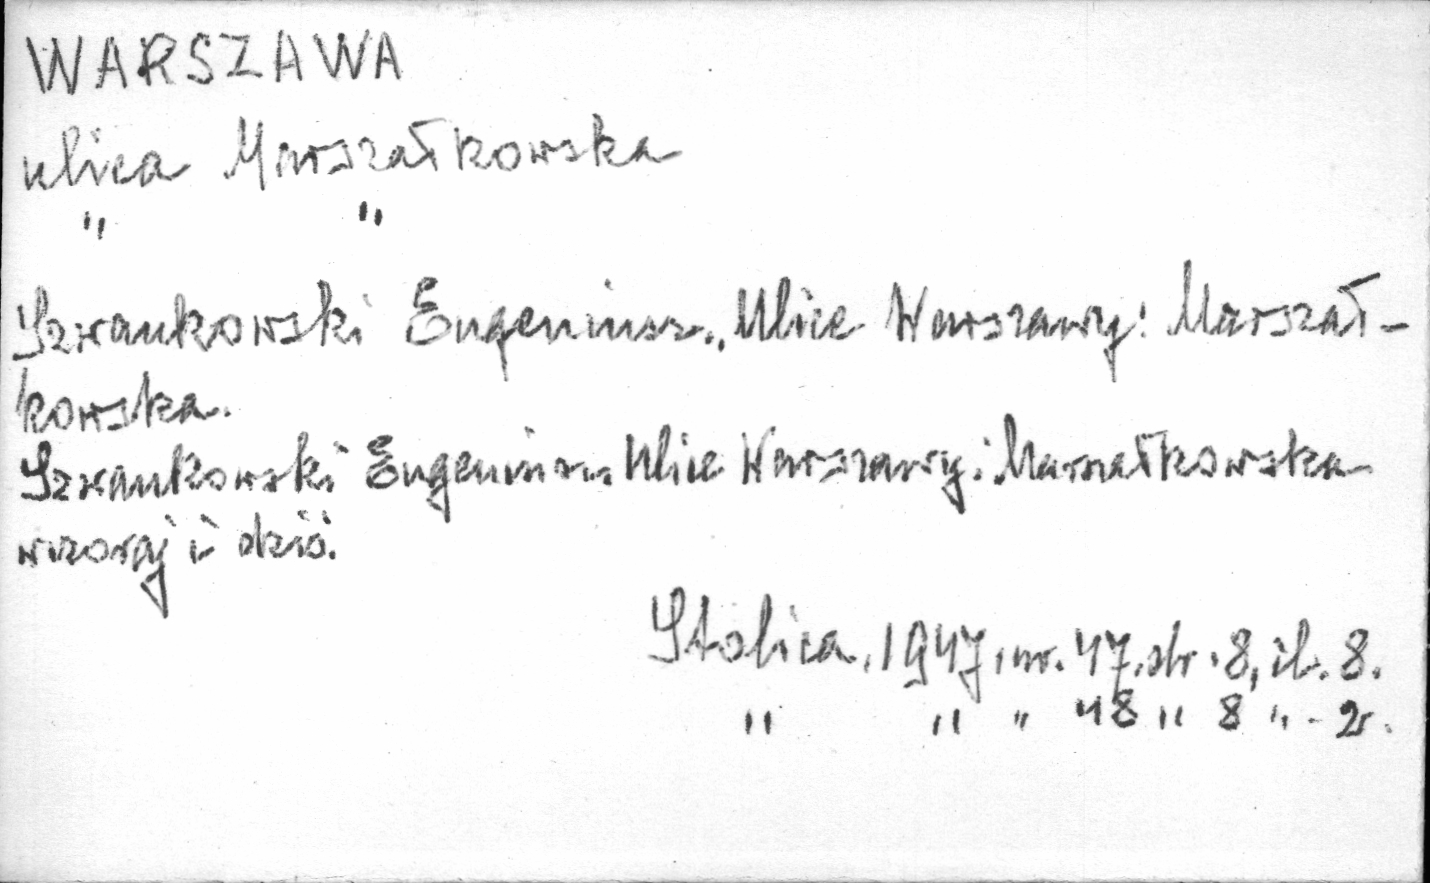 WARSZAWA
ulica Marszałkowska
" "
Szwankowski Eugeniusz. Ulice Warszawy: Marszał-
kowska.
Szwankowski Eugeniusz. Ulice Warszawy: Marszałkowska
wczoraj i dziś.
Stolica, 1947, nr. 47, str. 8, il. 8.
" " " 48 " 8 " - 2.